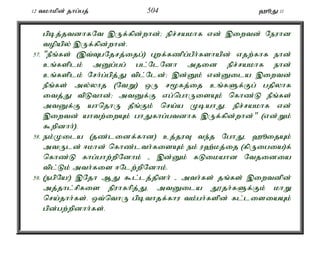 12 வமாமின் தாப்பத் 504 ஹூது 11
பிடித்தவனாகவே இருக்கின்றான்; நிச்சயமாக என் இறைவன் நேரான
வழியில் இருக்கின்றான்.
57. "நீங்கள் (இவ்வுபதேசத்தைப்) புறக்கணிப்பீர்களாயின் எதற்காக நான்
உங்களிடம் அனுப்பப் பட்டேனோ அதனை நிச்சயமாக நான்
உங்களிடம் சேர்ப்பித்து விட்டேன்; இன்னும் என்னுடைய இறைவன்
நீங்கள் அல்லாத (வேறு) ஒரு சமூகத்தை உங்களுக்குப் பதிலாக
வைத்து விடுவான்; அவனுக்கு எப்பொருளையும் கொண்டு நீங்கள்
அவனுக்கு யாதொரு தீங்கும் செய்ய முடியாது. நிச்சயமாக என்
இறைவன் யாவற்றையும் பாதுகாப்பவனாக இருக்கின்றான்" (என்றும்
கூறினார்).
58. நம்முடைய (தண்டனைக்கான) உத்தரவு வந்த போது, ஹூதையும்
அவருடன் ஈமான் கொண்டவர்களையும் நம் ரஹ்மத்தை (கிருபையை)க்
கொண்டு காப்பாற்றினோம் - இன்னும் கடுமையான வேதனையை
விட்டும் அவர்களை ஈடேற்றினோம்.
59. (நபியே!) இதோ ஆது கூட்டத்தினர் - அவர்கள் தங்கள் இறைவனின்
அத்தாட்சிகளை நிராகரித்து, அவனுடைய தூதர்களுக்கும் மாறு
செய்தார்கள். ஒவ்வொரு பிடிவாதக்கார வம்பர்களின் கட்டளையையும்
பின்பற்றினார்கள்.